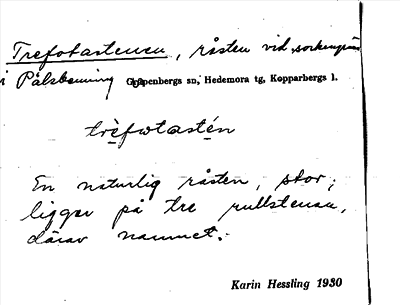 Trefotastenen, råsten vid sockengräns
i Pålsbenning Garpenbergs sn, Hedemora tg, Kopparbergs l.
trèfwtastén
En naturlig råsten, stor;
ligger på tre rullstenar,
därav namnet.
Karin Hessling 1930